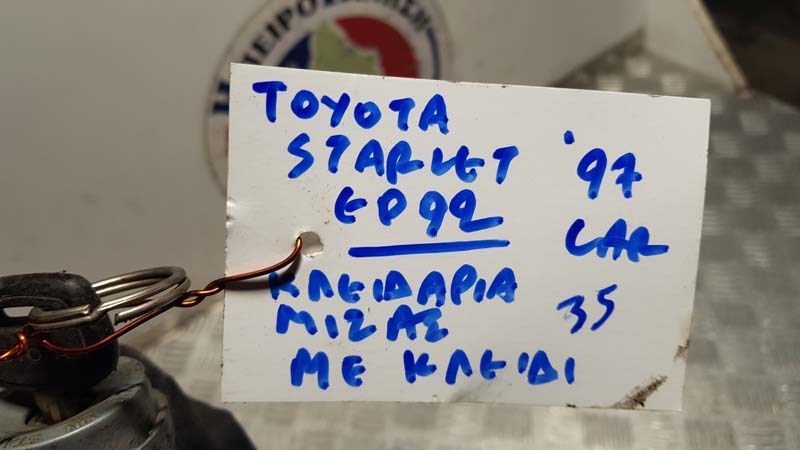 TOYOTA
STARLET '97
EP92 CAR
ΚΛΕΙΔΑΡΙΑ 35
ΜΙΖΑΣ
ΜΕ ΚΛΕΙΔΙ